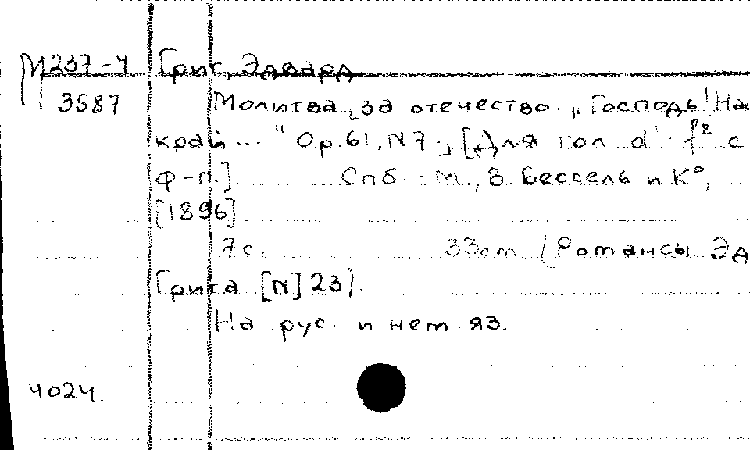 М237-4 Григ, Эдвард
3587 Молитва за отечество „Господь! На
край..." Op. 61, N7., [Для гол. d'-f² с
ф-п.] Спб.-М., В. Бессель и К°,
[1896]
7 с. 33 см (Романсы Эд
Грига [N] 23).
На рус. и нем. яз.
4024.